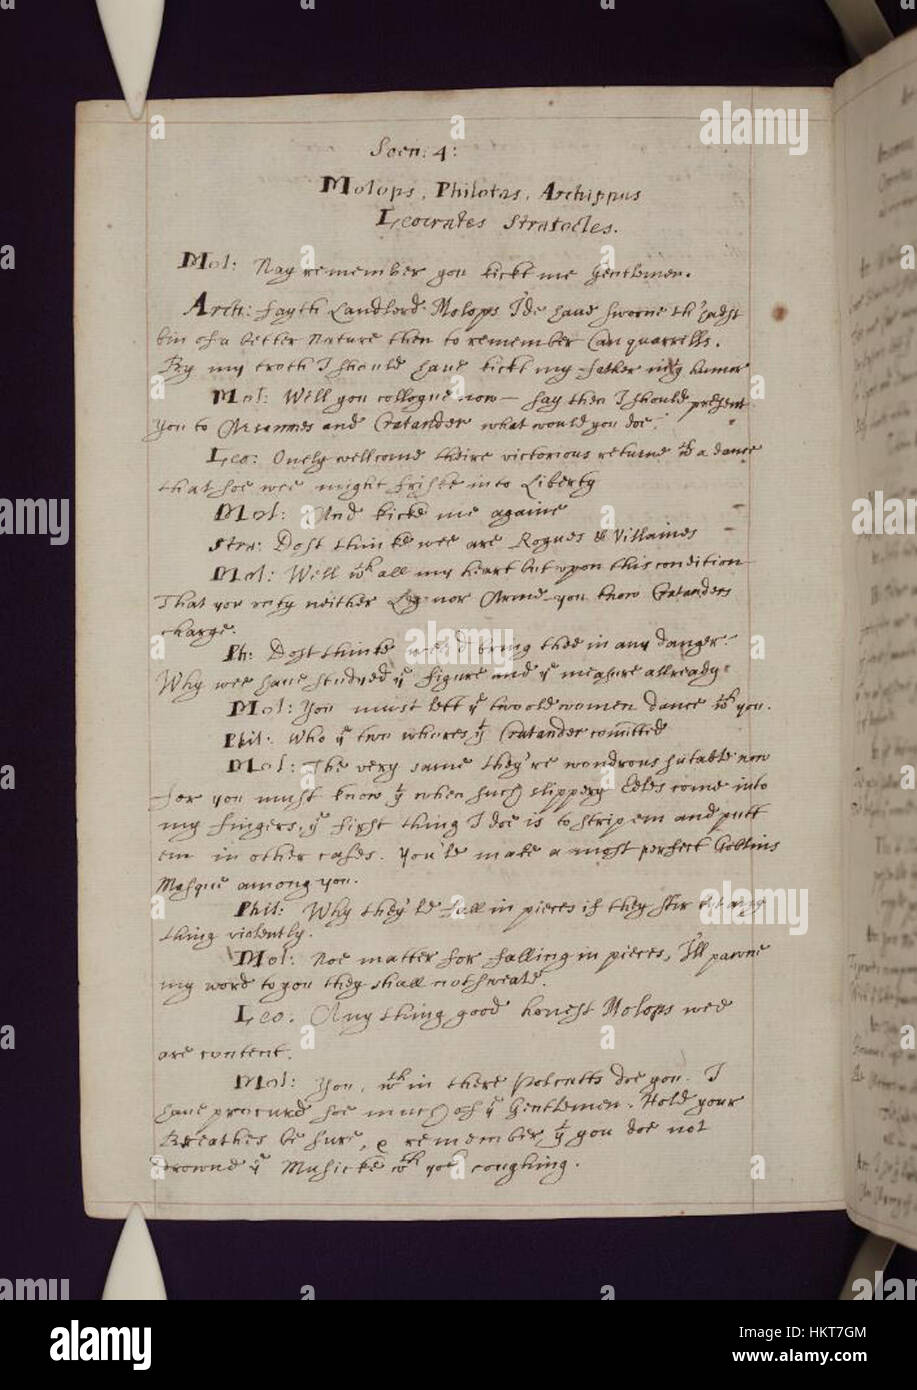 Scen: 4:
Molops, Philotas, Archippus
Leocrates Stratocles.
Mol: Nay remember you kickt me Gentlemen.
Arch: fayth Landlord Molops I'de haue sworne th'hadst
bin of a better Nature then to remember Can quarrills.
By my troth I should haue kickt my father in humor
Mol: Will you collogue now – say then I should present
you to Arsamnes and Cratander what would you doe.
Leo: Onely wellcome theire victorious returne wth a dance
that soe wee might friske into Liberty
Mol: And kicke me againe
Stra: Dost thinke wee are Rogues & Villaines
Mol: Well wth all my heart but vpon this condition
That you neither Leg nor Arme you know Cratanders
charge.
Ph: Dost thinke wee'd bring thee in any danger.
Why wee haue studyed ye figure and ye measure allready
Mol: You must lett ye two old women dance wth you.
Phil: Who ye two whores yt Cratander comitted
Mol: The very same they're wondrous sutable now
for you must know yt when such slippery Eeles come into
my fingers, ye first thing I doe is to strip em and putt
em in other cases. You'le make a most perfect Goblins
Masque among you.
Phil: Why they'le fall in pieces if they stir any
thing violently.
Mol: Noe matter for falling in pieces, I'll pawne
my word to you they shall not sweate.
Leo. Any thing good honest Molops wee
are content.
Mol: You, wth in there Polcatts doe you. I
haue procurd soe much of ye Gentlemen. Hold your
Breathes be sure, & remember yt you doe not
drownd ye Musicke wth yor coughing.
alamy
alamy
alamy
alamy
alamy
alamy
alamy
Image ID: HKT7GM
www.alamy.com